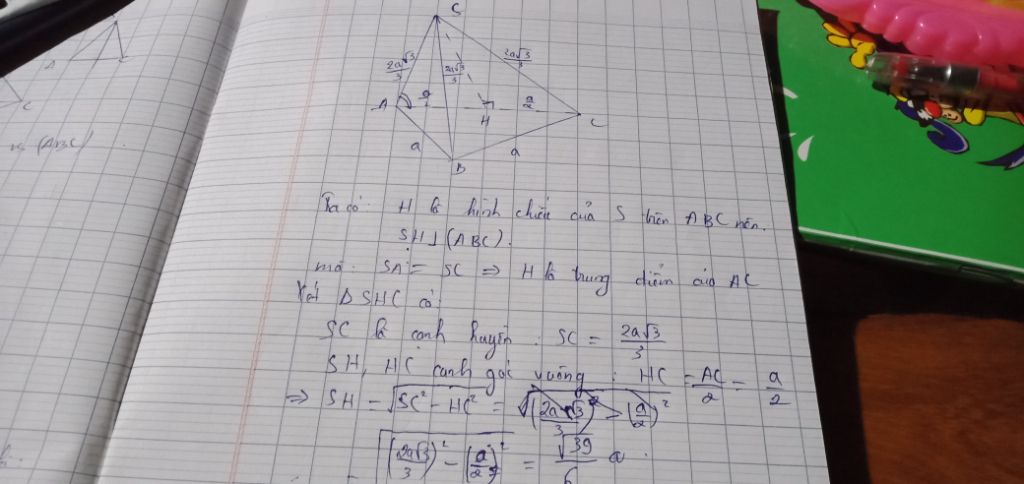 S
2a√3/3
2a√3/3
2a√3/3
A
a/2
H
a/2
C
a
B
a
C
(ABC)
Ta có: H là hình chiếu của S trên ABC nên.
SH⊥(ABC).
mà. SA = SC ⇒ H là trung điểm của AC
Xét Δ SHC có
SC là cạnh huyền. SC = 2a√3/3
SH, HC cạnh góc vuông: HC = AC/2 = a/2
⇒ SH = √SC² - HC² =
√(2a√3/3)² - (a/2)² = √39/6 a.